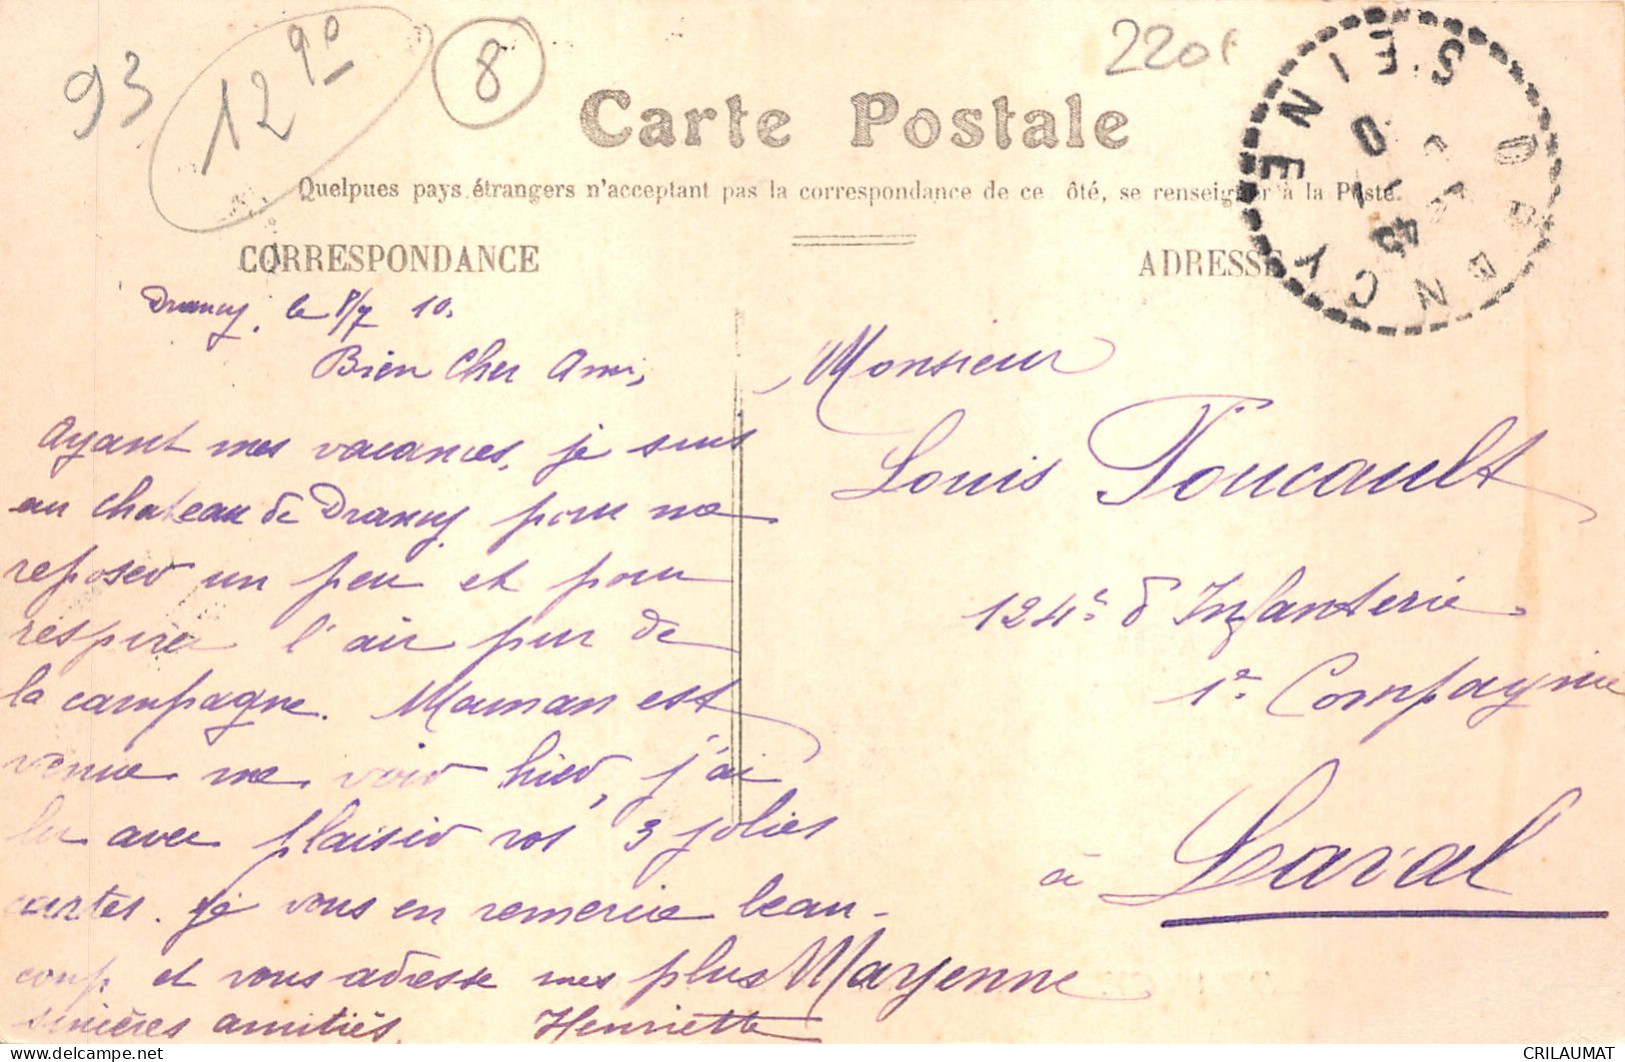 93
12 90
8
220f
Carte Postale
Quelpues pays étrangers n'acceptant pas la correspondance de ce ôté, se renseigner à la Poste.
CORRESPONDANCE
ADRESSE
DRANCY SEINE
Drancy, le 8/7 10.
Bien Cher Ami,
Ayant mes vacances, je suis
au chateau de Drancy pour me
reposer un peu et pour
respirer l'air pur de
la campagne. Maman est
venue me voir hier, j'ai
lu avec plaisir vos 3 jolies
cartes. je vous en remercie beau-
coup et vous adresse mes plus
sincères amitiés. Henriette
Monsieur
Louis Foucault
124e d'Infanterie
1e Compagnie
à Laval
Mayenne
CRILAUMAT